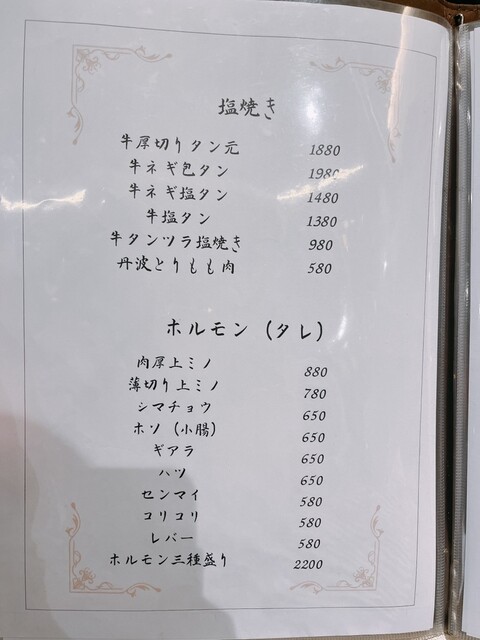 塩焼き
牛厚切りタン元 1880
牛ネギ包タン 1980
牛ネギ塩タン 1480
牛塩タン 1380
牛タンツラ塩焼き 980
丹波とりもも肉 580
ホルモン（タレ）
肉厚上ミノ 880
薄切り上ミノ 780
シマチョウ 650
ホソ（小腸） 650
ギアラ 650
ハツ 650
センマイ 580
コリコリ 580
レバー 580
ホルモン三種盛り 2200